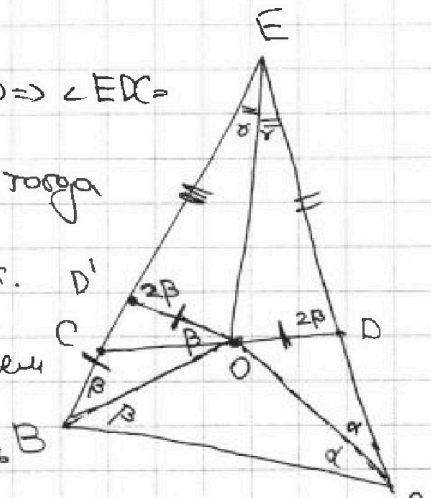 E
⇒ ∠EDC=
γ γ
тогда
D' 2β
2β D
C β
O
β
β
B
α
α